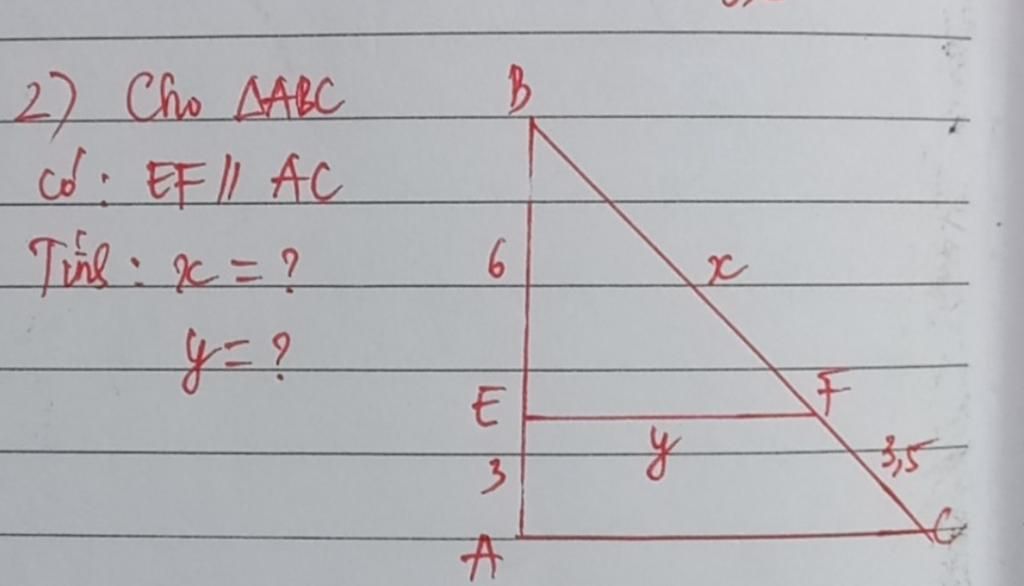 2) Cho ΔABC
có: EF // AC
Tính: x = ?
y = ?
B
6
x
E
F
y
3,5
3
A
C